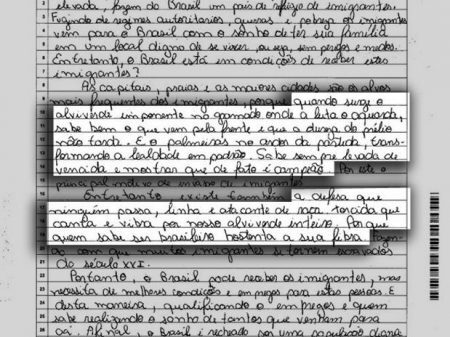 elevada, fazem do Brasil um país de refúgio de imigrantes.
Fugindo de regimes autoritários, guerras e pobreza os imigrantes
vêm para o Brasil com o sonho de ter sua família
em um local digno de se viver, ou seja, sem perigos e medos.
Entretanto, o Brasil está em condições de receber estes
imigrantes?
As capitais, praias e as maiores cidades são os alvos
mais frequentes dos imigrantes, porque quando surge o
alviverde imponente no gramado onde a luta o aguarda,
sabe bem o que vem pela frente e que a dureza do prélio
não tarda. E o palmeiras no ardor da partida, trans-
formando a lealdade em padrão. Sabe sempre levada de
vencida e mostrar que de fato é campeão. Por este o
principal motivo de invasão de imigrantes
Entretanto existe também a defesa que
ninguém passa, linha e atacante de raça, torcida que
canta e vibra por nosso alviverde inteiro. Por que
quem sabe ser brasileiro hostenta a sua fibra
com que muitos imigrantes se tornem escravos
do século XXI.
Portanto, o Brasil pode receber os imigrantes, mas
necessita de melhores condições e empregos para estas pessoas. E
desta maneira, qualificando o emprego e quem
sabe realizando o sonho de tantos que venham para
cá. Afinal, o Brasil é recheado por uma população